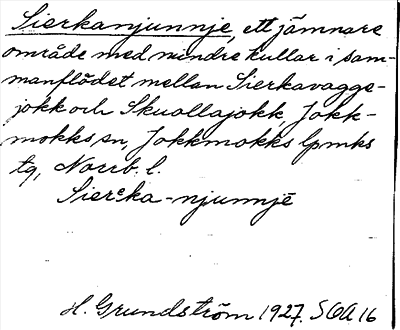 Sierkanjunnje, ett jämnare
område med mindre kullar i sam-
manflödet mellan Sierkavagge-
jokk och Skuollajokk, Jokk-
mokks sn, Jokkmokks lpmks
tg, Norrb. l.
Siercka-njunnjē
H. Grundström 1927. SOA 16